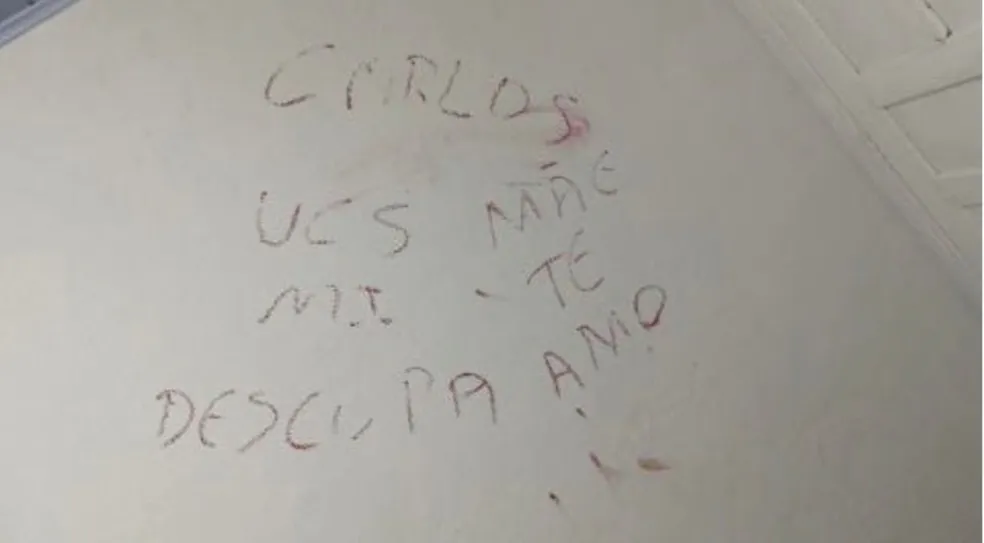 CARLOS
VCS MÃE
MI - TE
DESCULPA AMO